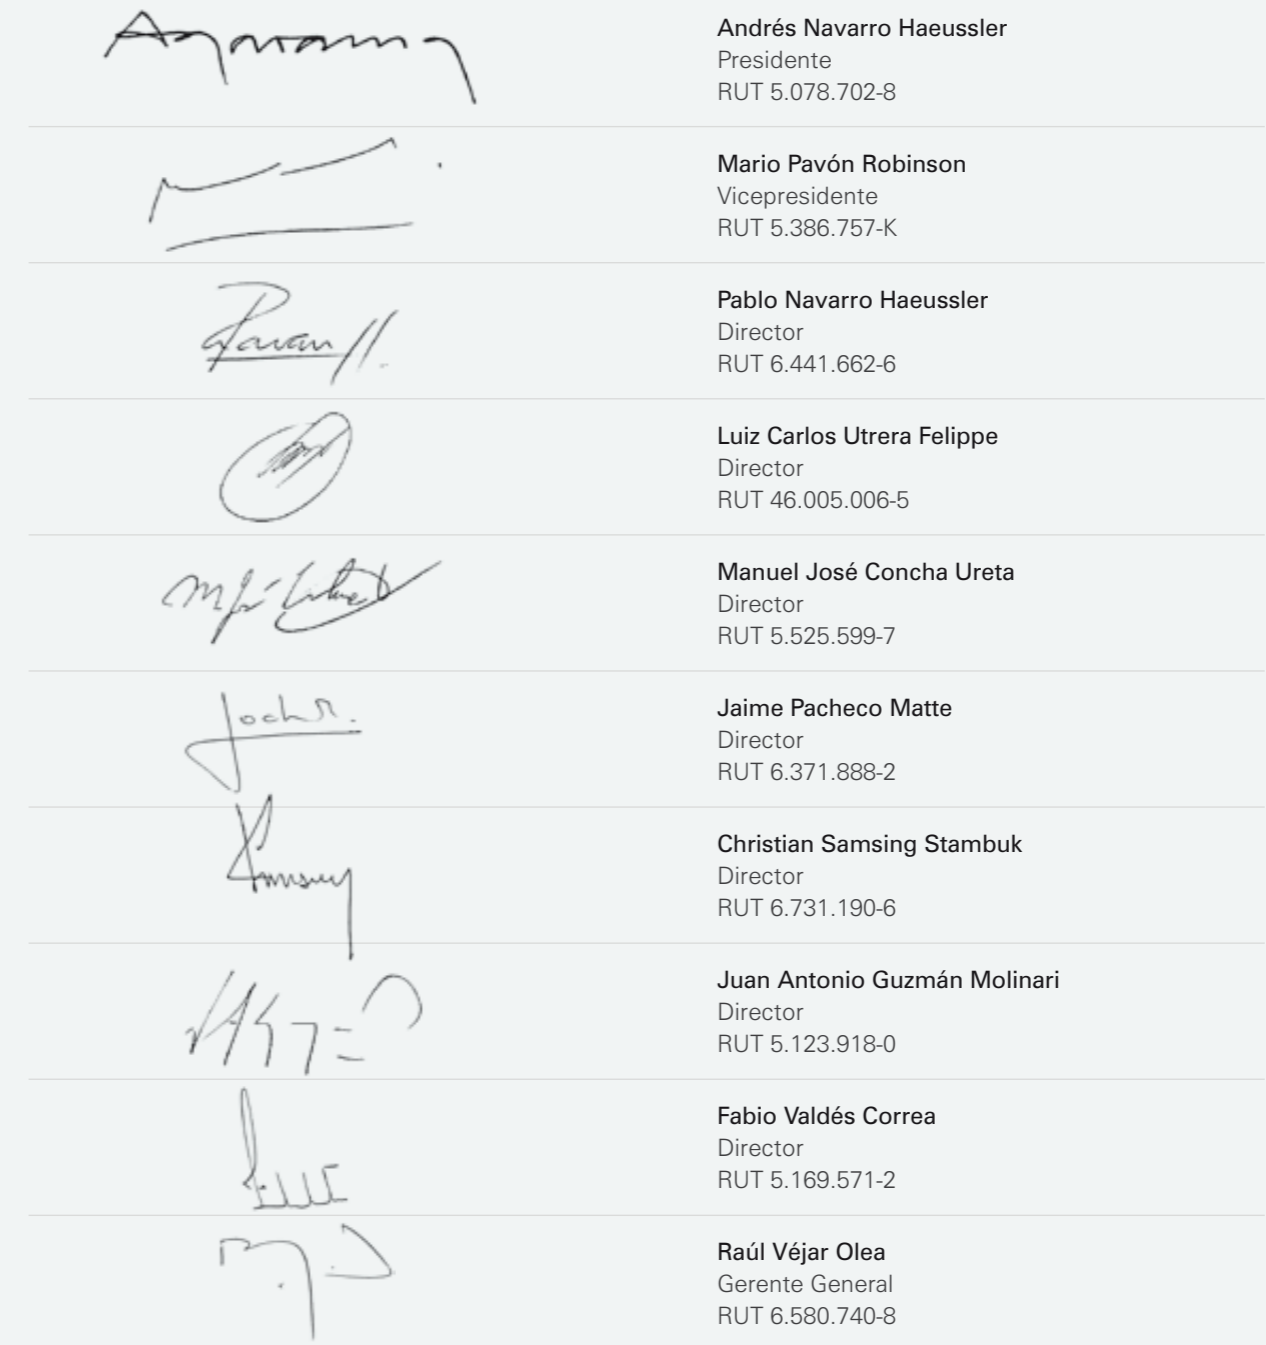 Andrés Navarro Haeussler
Presidente
RUT 5.078.702-8
Mario Pavón Robinson
Vicepresidente
RUT 5.386.757-K
Pablo Navarro Haeussler
Director
RUT 6.441.662-6
Luiz Carlos Utrera Felippe
Director
RUT 46.005.006-5
Manuel José Concha Ureta
Director
RUT 5.525.599-7
Jaime Pacheco Matte
Director
RUT 6.371.888-2
Christian Samsing Stambuk
Director
RUT 6.731.190-6
Juan Antonio Guzmán Molinari
Director
RUT 5.123.918-0
Fabio Valdés Correa
Director
RUT 5.169.571-2
Raúl Véjar Olea
Gerente General
RUT 6.580.740-8